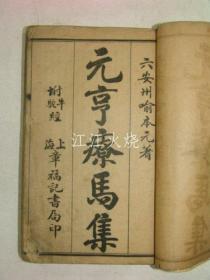 六安州喻本元著
元亨療馬集
附牛駝經
上海章福記書局印
江江火烧